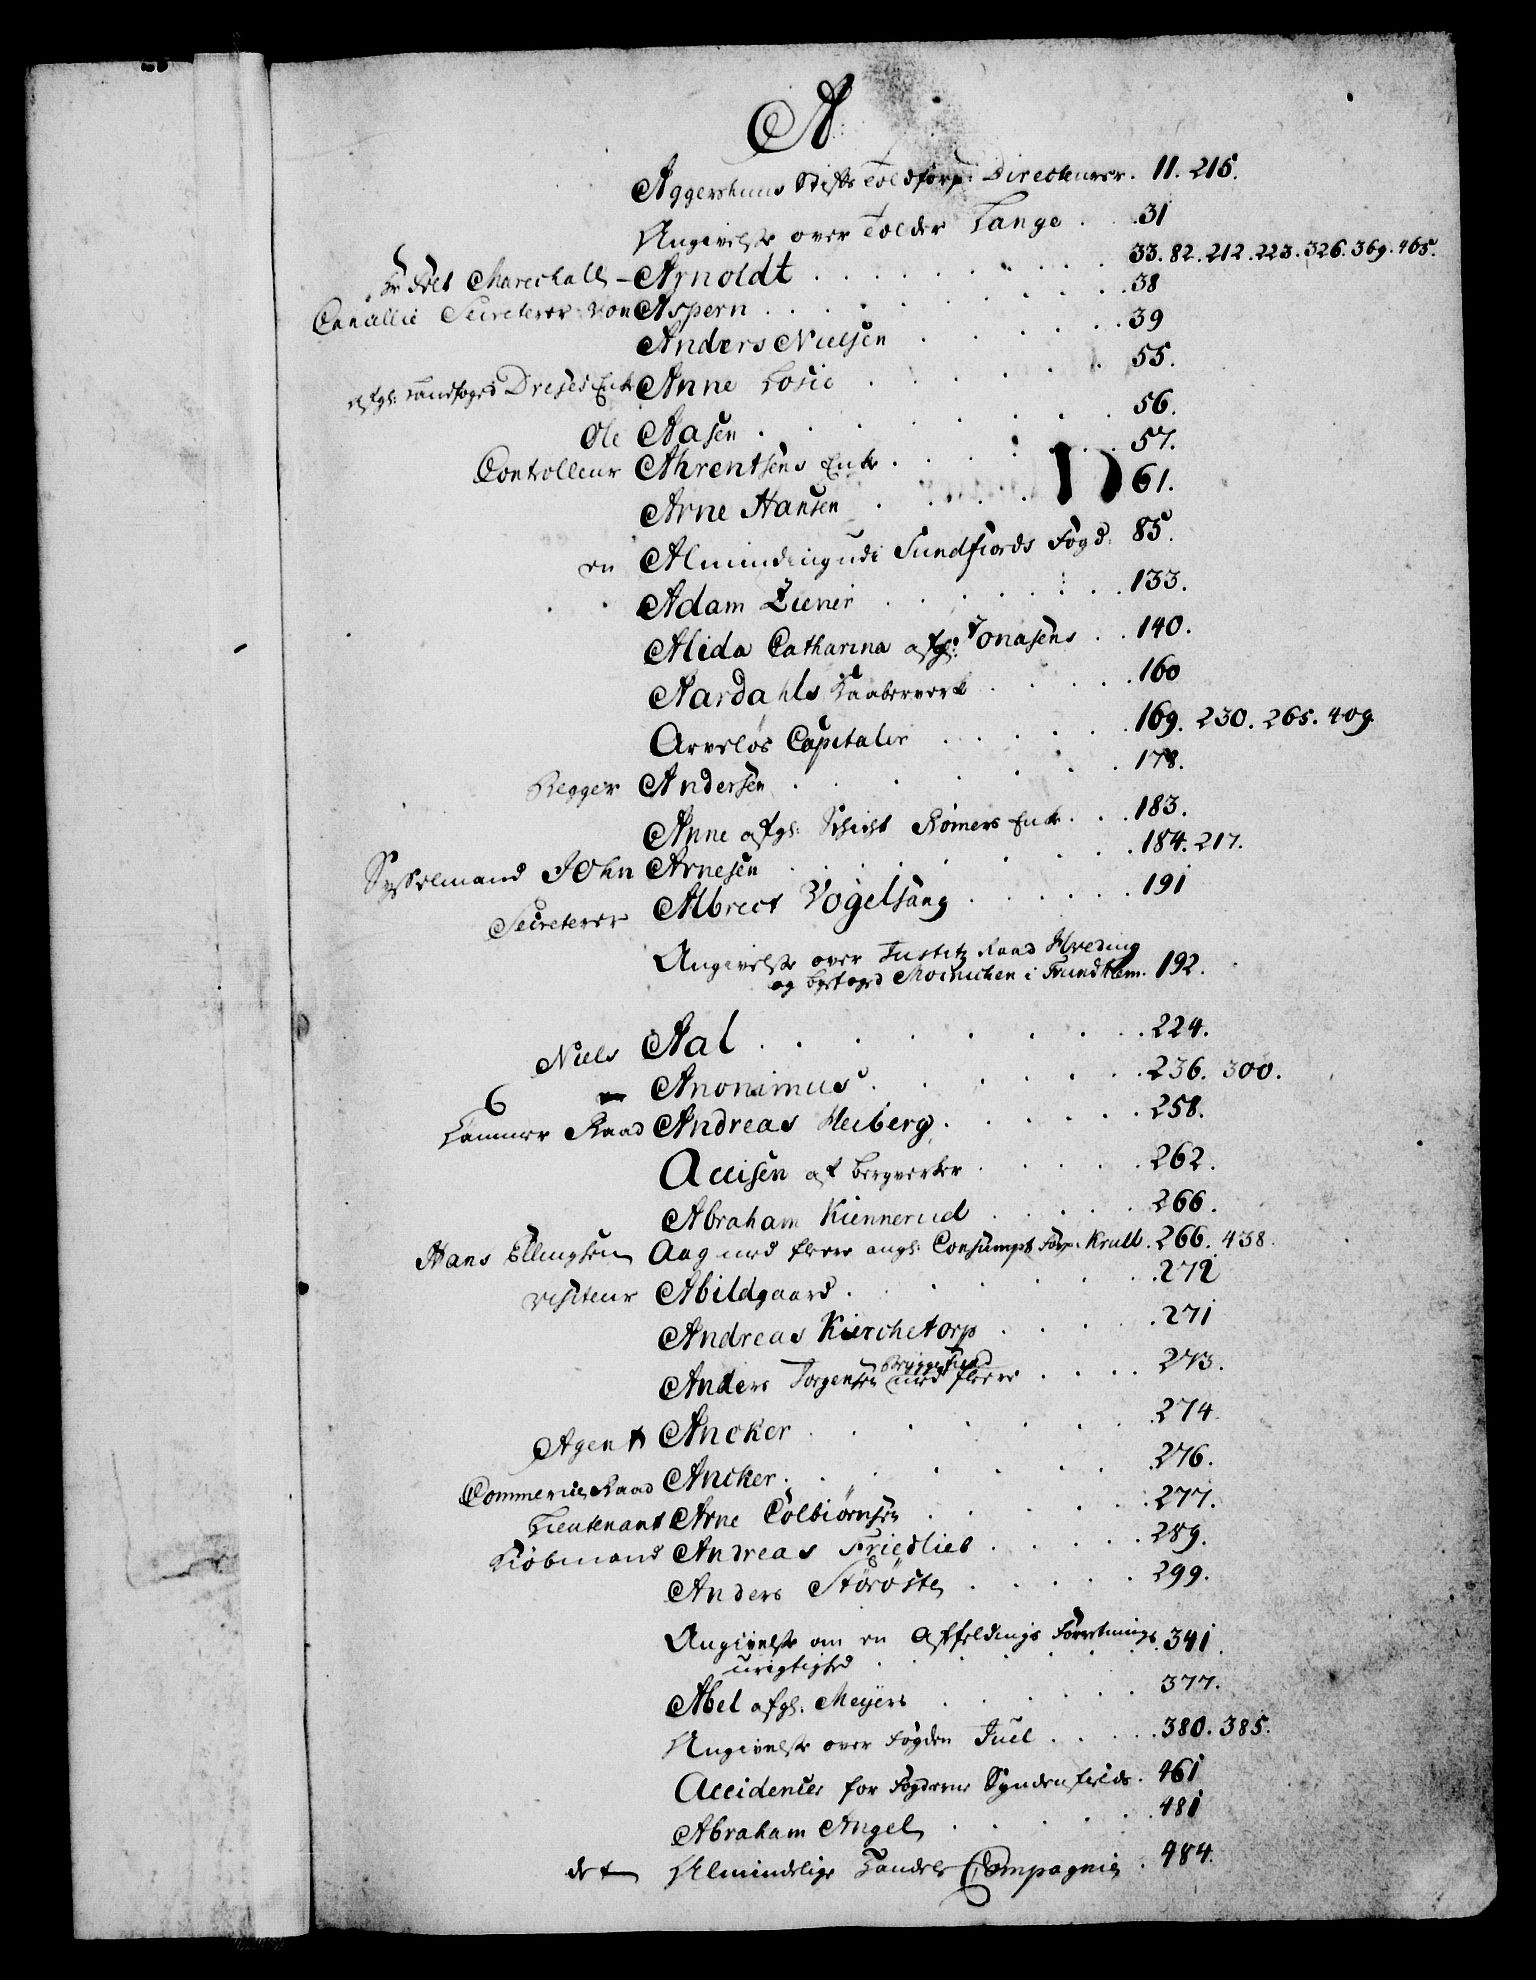 A
Aggershuus Stifts Toldforp. Directeurer. 11. 215.
Angivelse over Tolder Lange . . 31
Hr Felt Marechall - Arnoldt . . . 33. 82. 212. 223. 326. 369. 465.
Cancellie Secreterer von Aspern . . . 38
Anders Nielsen . . . 39
afgl: Landfoged Dreyes Enke Anne Losie . . . 55.
Ole Aasen . . . 56.
Controlleur Ahrentsens Enke . . . 57.
Arne Hansen . . . 61.
en Almindingudi Sundfiords Fogd: 85.
Adam Ziener . . . 133.
Alida Catharina afgl: Jonasens . . 140.
Aardahls Kaaberverk . . . 160
Arveløs Capitaler . . . 169. 230. 265. 409.
Andersen . . . 178.
Anne afgl: Römers Enke . . . 183.
Sysselmand John Arnesen . . . 184. 217.
Secreterer Albrect Vogelsang . . . 191
Angivelse over Justitz Raad Hveding
og Byefoged Moinichen i Trundhiem. 192.
Niels Aal . . . 224.
Anonimus . . . 236. 300.
Cammer Raad Andreas Heiberg . . . 258.
Accisen af Bergverker . . . 262.
Abraham Kiennerud . . . 266.
Hans Ellingsen Aag med flere angl: Consumpt. Forp. Krull. 266. 438.
Visiteur Abildgaard . . . 272
Andreas Kierchetorp . . . 271
Anders Jorgensen med flere . . . 273.
Agent Ancker . . . 274.
Commerce Raad Ancker . . . 276.
Lieutenant Arne Colbiørnsen . . . 277.
Kiøbmand Andreas Friedlieb . . . 289.
Anders Storøsten . . . 299.
Angivelse om en Affældings Forretnings
urigtighed . . . 341.
Abel afgl. Meyers . . . 377.
Angivelse over Fogden Juel . . . 380. 385.
Accidencer for Fogderne Syndenfields. 461
Abraham Angel . . . 481
det Almindelige Handels Compagnie . 484.